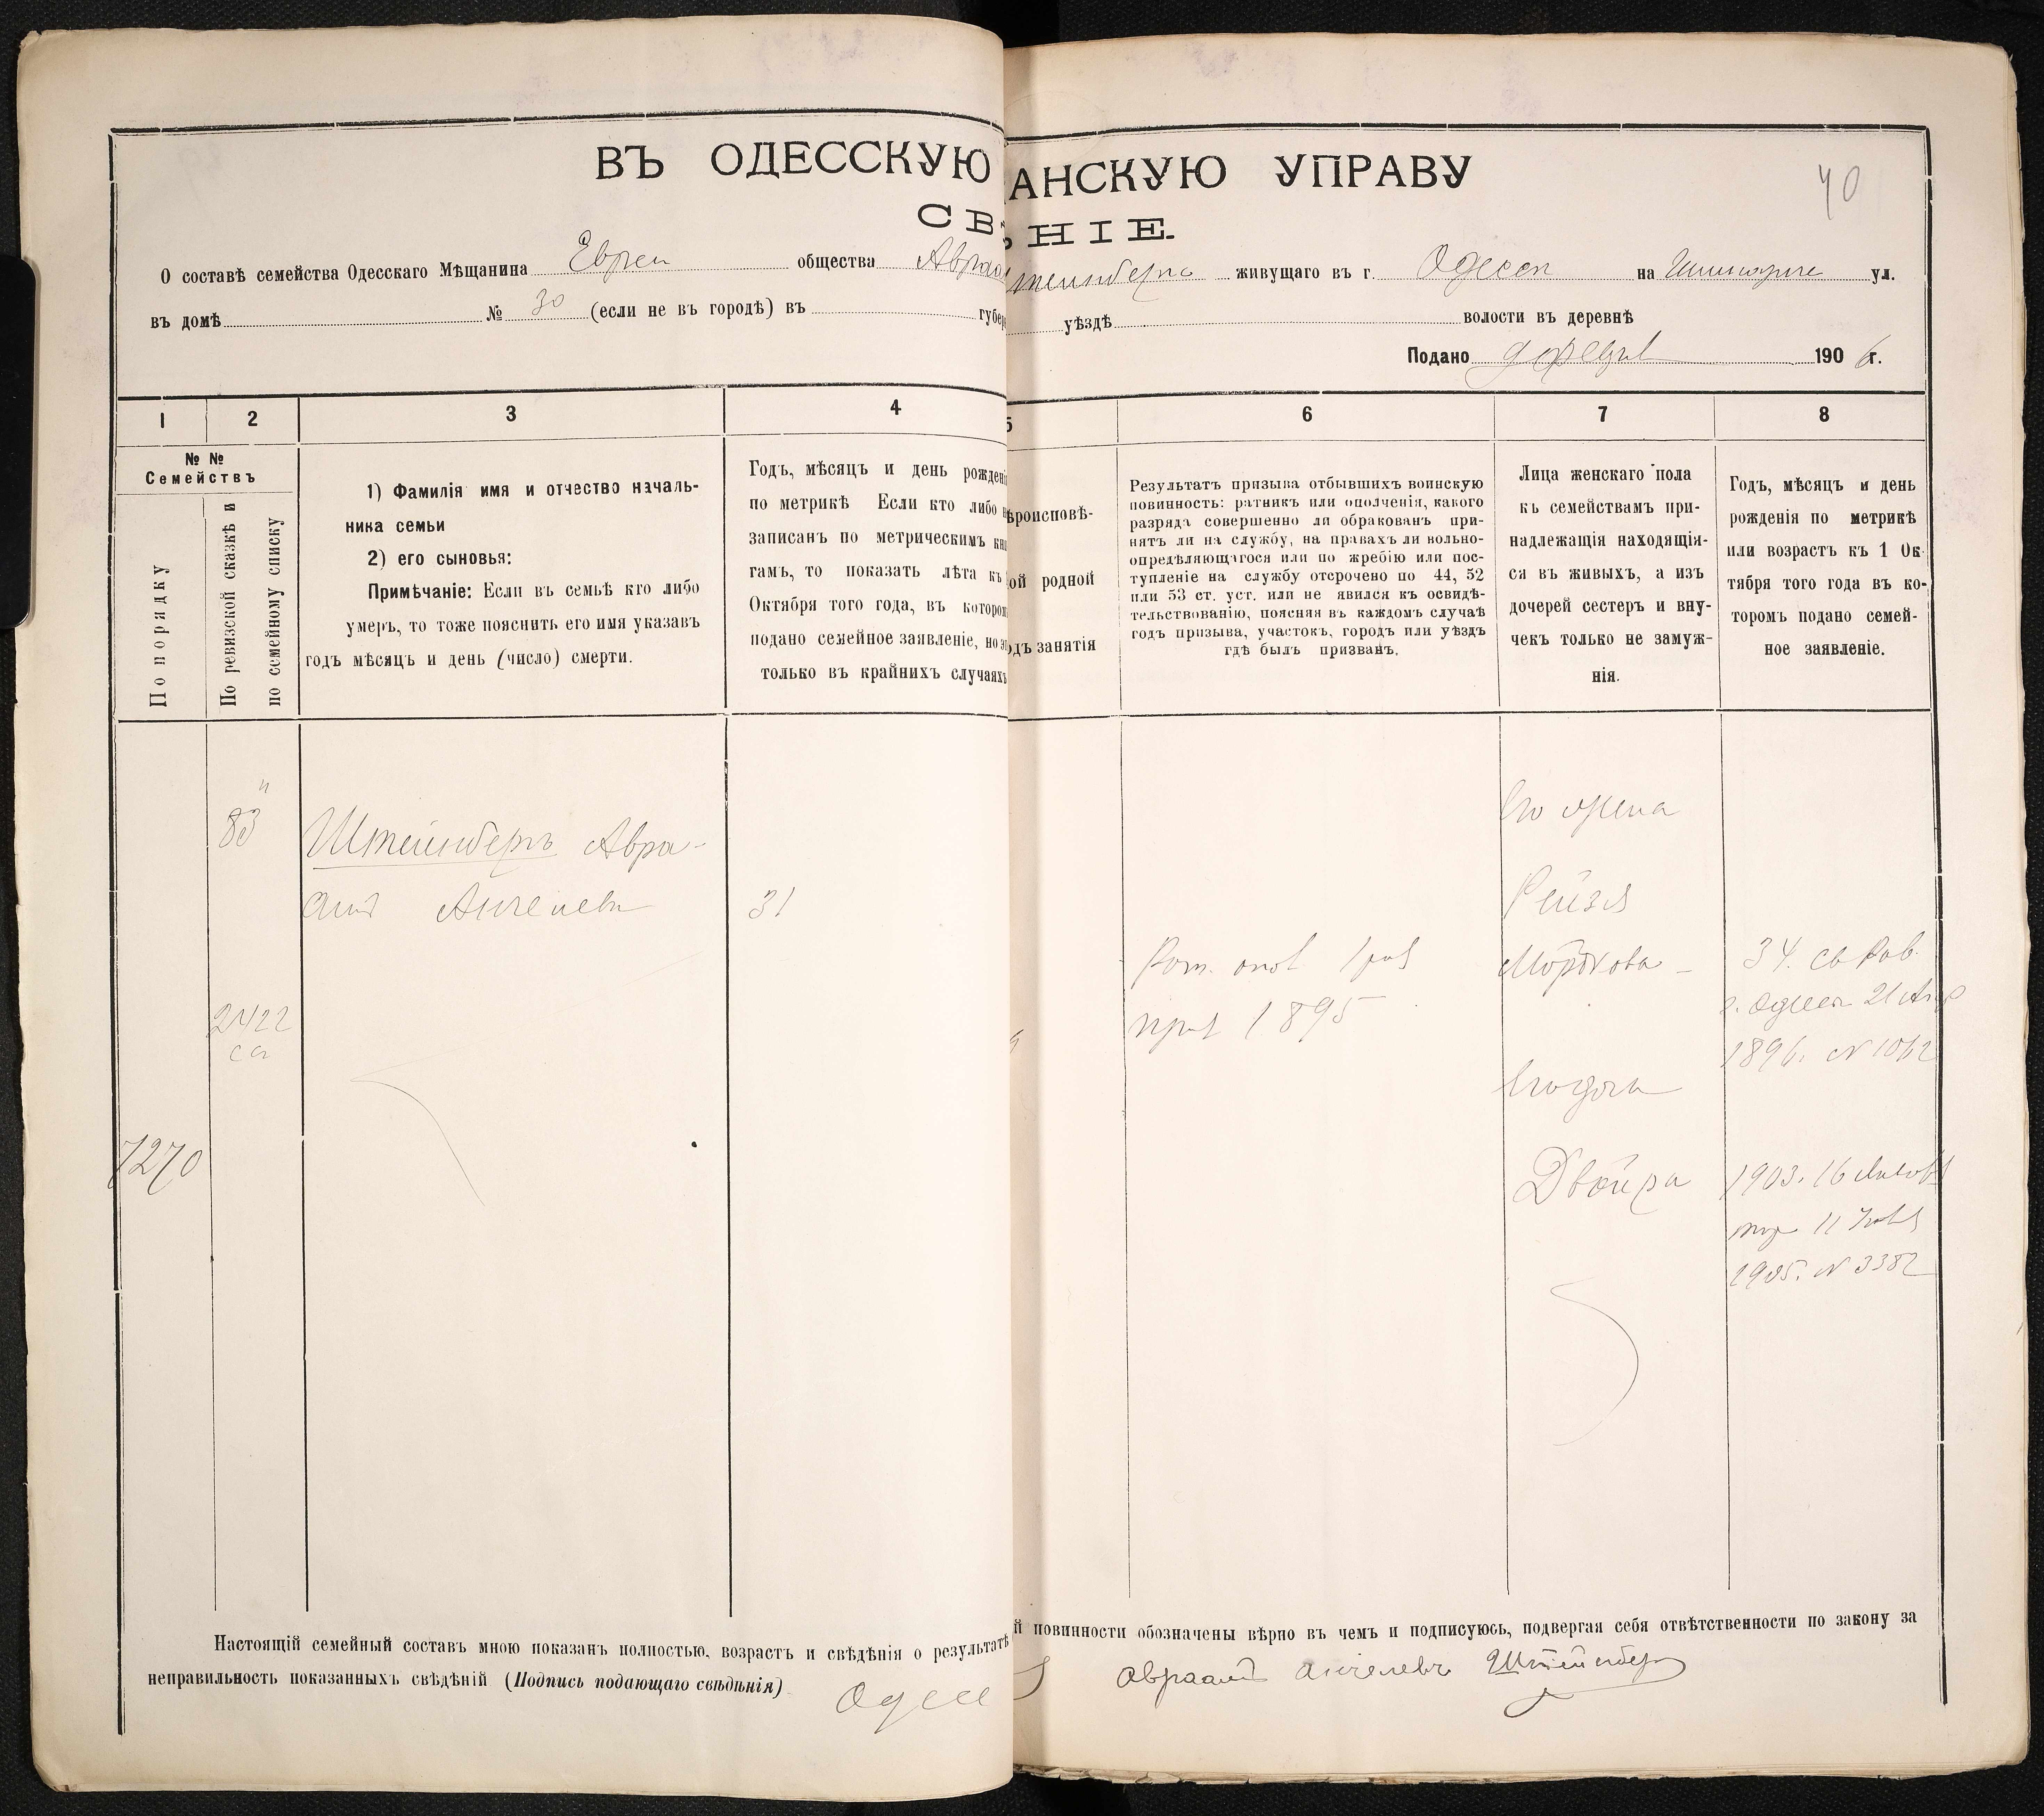 ВЪ ОДЕССКУЮ АНСКУЮ УПРАВУ
40
СВ НІЕ.
О составѣ семейства Одесскаго Мѣщанина Евреи общества Авраа тейнберга живущаго въ г. Одессѣ на ул.
въ домѣ № 30 (если не въ городѣ) въ губер уѣздѣ волости въ деревнѣ
Подано 1906 г.
1 2 3 4 5 6 7 8
№ №
Семействъ
По порядку
По ревизской сказкѣ и
по семейному списку
1) Фамилія имя и отчество началь-
ника семьи
2) его сыновья:
Примѣчаніе: Если въ семьѣ кто либо
умеръ, то тоже пояснить его имя указавъ
годъ мѣсяцъ и день (число) смерти.
Годъ, мѣсяцъ и день рожден
по метрикѣ Если кто либо н
записанъ по метрическимъ кн
гамъ, то показать лѣта къ
Октября того года, въ которо
подано семейное заявленіе, но э
только въ крайнихъ случаяхъ
ѣроисповѣ-
ой родной
дъ занятія
Результатъ призыва отбывшихъ воинскую
повинность: ратникъ или ополченія, какого
разряда совершенно ли обракованъ при-
нятъ ли на службу, на правахъ ли вольно-
опредѣляющагося или по жребію или пос-
тупленіе на службу отсрочено по 44, 52
или 53 ст. уст. или не явился къ освидѣ-
тельствованію, поясняя въ каждомъ случаѣ
годъ призыва, участокъ, городъ или уѣздъ
гдѣ былъ призванъ.
Лица женскаго пола
къ семействамъ при-
надлежащія находящія-
ся въ живыхъ, а изъ
дочерей сестеръ и вну-
чекъ только не замуж-
нія.
Годъ, мѣсяцъ и день
рожденія по метрикѣ
или возрастъ къ 1 Ок-
тября того года въ ко-
торомъ подано семей-
ное заявленіе.
83
Штейнбергъ Авра-
амъ Анчелевъ
31
2422
7270
Рат. опол 1 раз
приз 1895
Его жена
Рейзя
Мордкова
34. св Рав.
г. Одессы 21 Апр
1896. N 1062
Его дочь
Двойра
1903. 16
11
1905. N 3382
Настоящій семейный составъ мною показанъ полностью, возрастъ и свѣдѣнія о результатѣ й повинности обозначены вѣрно въ чемъ и подписуюсь, подвергая себя отвѣтственности по закону за
неправильность показанныхъ свѣдѣній (Подпись подающаго свѣдѣнія) Одесс Авраамъ Анчелевъ Штейнбергъ